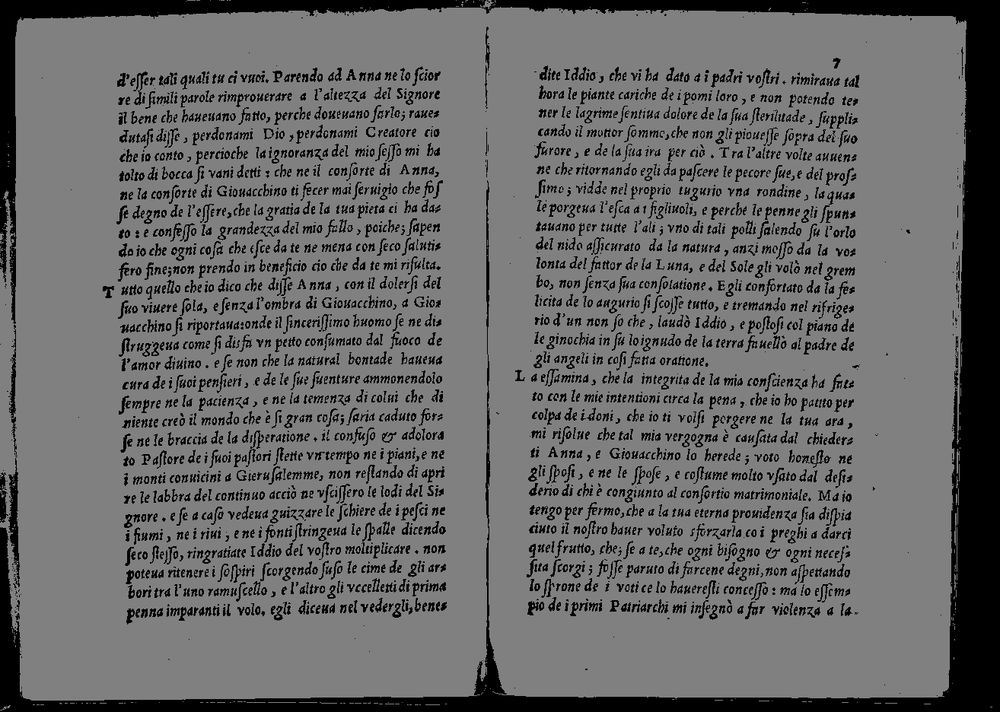 d'esser tali quali tu ci vuoi. Parendo ad Anna ne lo scior
re di simili parole rimprouerare a l'altezza del Signore
il bene che haueuano fatto, perche doueuano farlo; raue-
dutasi disse, perdonami Dio, perdonami Creatore cio
che io conto, percioche la ignoranza del mio sesso mi ha
tolto di bocca si vani detti: che ne il consorte di Anna,
ne la consorte di Giouacchino ti fecer mai seruigio che fos
se degno de l'essere, che la gratia de la tua pieta ci ha da-
to: e confesso la grandezza del mio fallo, poiche; sapen
do io che ogni cosa che esce da te ne mena con seco saluti-
fero fine; non prendo in beneficio cio che da te mi risulta.
Tutto quello che io dico che disse Anna, con il dolersi del
suo viuere sola, e senza l'ombra di Giouacchino, a Gio-
uacchino si riportaua: onde il sincerissimo huomo se ne di-
struggeua come si disfa vn petto consumato dal fuoco de
l'amor diuino. e se non che la natural bontade haueua
cura de i suoi pensieri, e de le sue suenture ammonendolo
sempre ne la pacienza, e ne la temenza di colui che di
niente creò il mondo che è si gran cosa; saria caduto for-
se ne le braccia de la disperatione. il confuso & adolora
to Pastore de i suoi pastori stette vn tempo ne i piani, e ne
i monti conuicini a Gierusalemme, non restando di apri
re le labbra del continuo acciò ne vscissero le lodi del Si-
gnore. e se a caso vedeua guizzare le schiere de i pesci ne
i fiumi, ne i riui, e ne i fonti stringeua le spalle dicendo
seco stesso, ringratiate Iddio del vostro moltiplicare. non
poteua ritenere i sospiri scorgendo suso le cime de gli ar-
bori tra l'uno ramuscello, e l'altro gli vccelletti di prima
penna imparanti il volo. egli diceua nel vedergli, bene-
7
dite Iddio, che vi ha dato a i padri vostri. rimiraua tal
hora le piante cariche de i pomi loro, e non potendo te-
ner le lagrime sentiua dolore de la sua sterilitade, suppli-
cando il mottor sommo, che non gli piouesse sopra del suo
furore, e de la sua ira per ciò. Tra l'altre volte auuen-
ne che ritornando egli da pascere le pecore sue, e del pros-
simo; vidde nel proprio tugurio vna rondine, la qua-
le porgeua l'esca a i figliuoli, e perche le penne gli spun-
tauano per tutte l'ali; vno di tali polli salendo su l'orlo
del nido assicurato da la natura, anzi mosso da la vo-
lonta del fattor de la Luna, e del Sole gli volò nel grem
bo, non senza sua consolatione. Egli confortato da la fe-
licita de lo augurio si scosse tutto, e tremando nel rifrige-
rio d'un non so che, laudò Iddio, e postosi col piano de
le ginocchia in su lo ignudo de la terra fauellò al padre de
gli angeli in cosi fatta oratione.
La essamina, che la integrita de la mia conscienza ha fat-
to con le mie intentioni circa la pena, che io ho patito per
colpa de i doni, che io ti volsi porgere ne la tua ara,
mi risolue che tal mia vergogna è causata dal chieder-
ti Anna, e Giouacchino lo herede; voto honesto ne
gli sposi, e ne le spose, e costume molto vsato dal desi-
derio di chi è congiunto al consortio matrimoniale. Ma io
tengo per fermo, che a la tua eterna prouidenza sia dispia
ciuto il nostro hauer voluto sforzarla co i preghi a darci
quel frutto, che; se a te, che ogni bisogno & ogni neces-
sita scorgi; fosse paruto di farcene degni, non aspettando
lo sprone de i voti ce lo haueresti concesso: ma lo essem-
pio de i primi Patriarchi mi insegnò a far violenza a la-